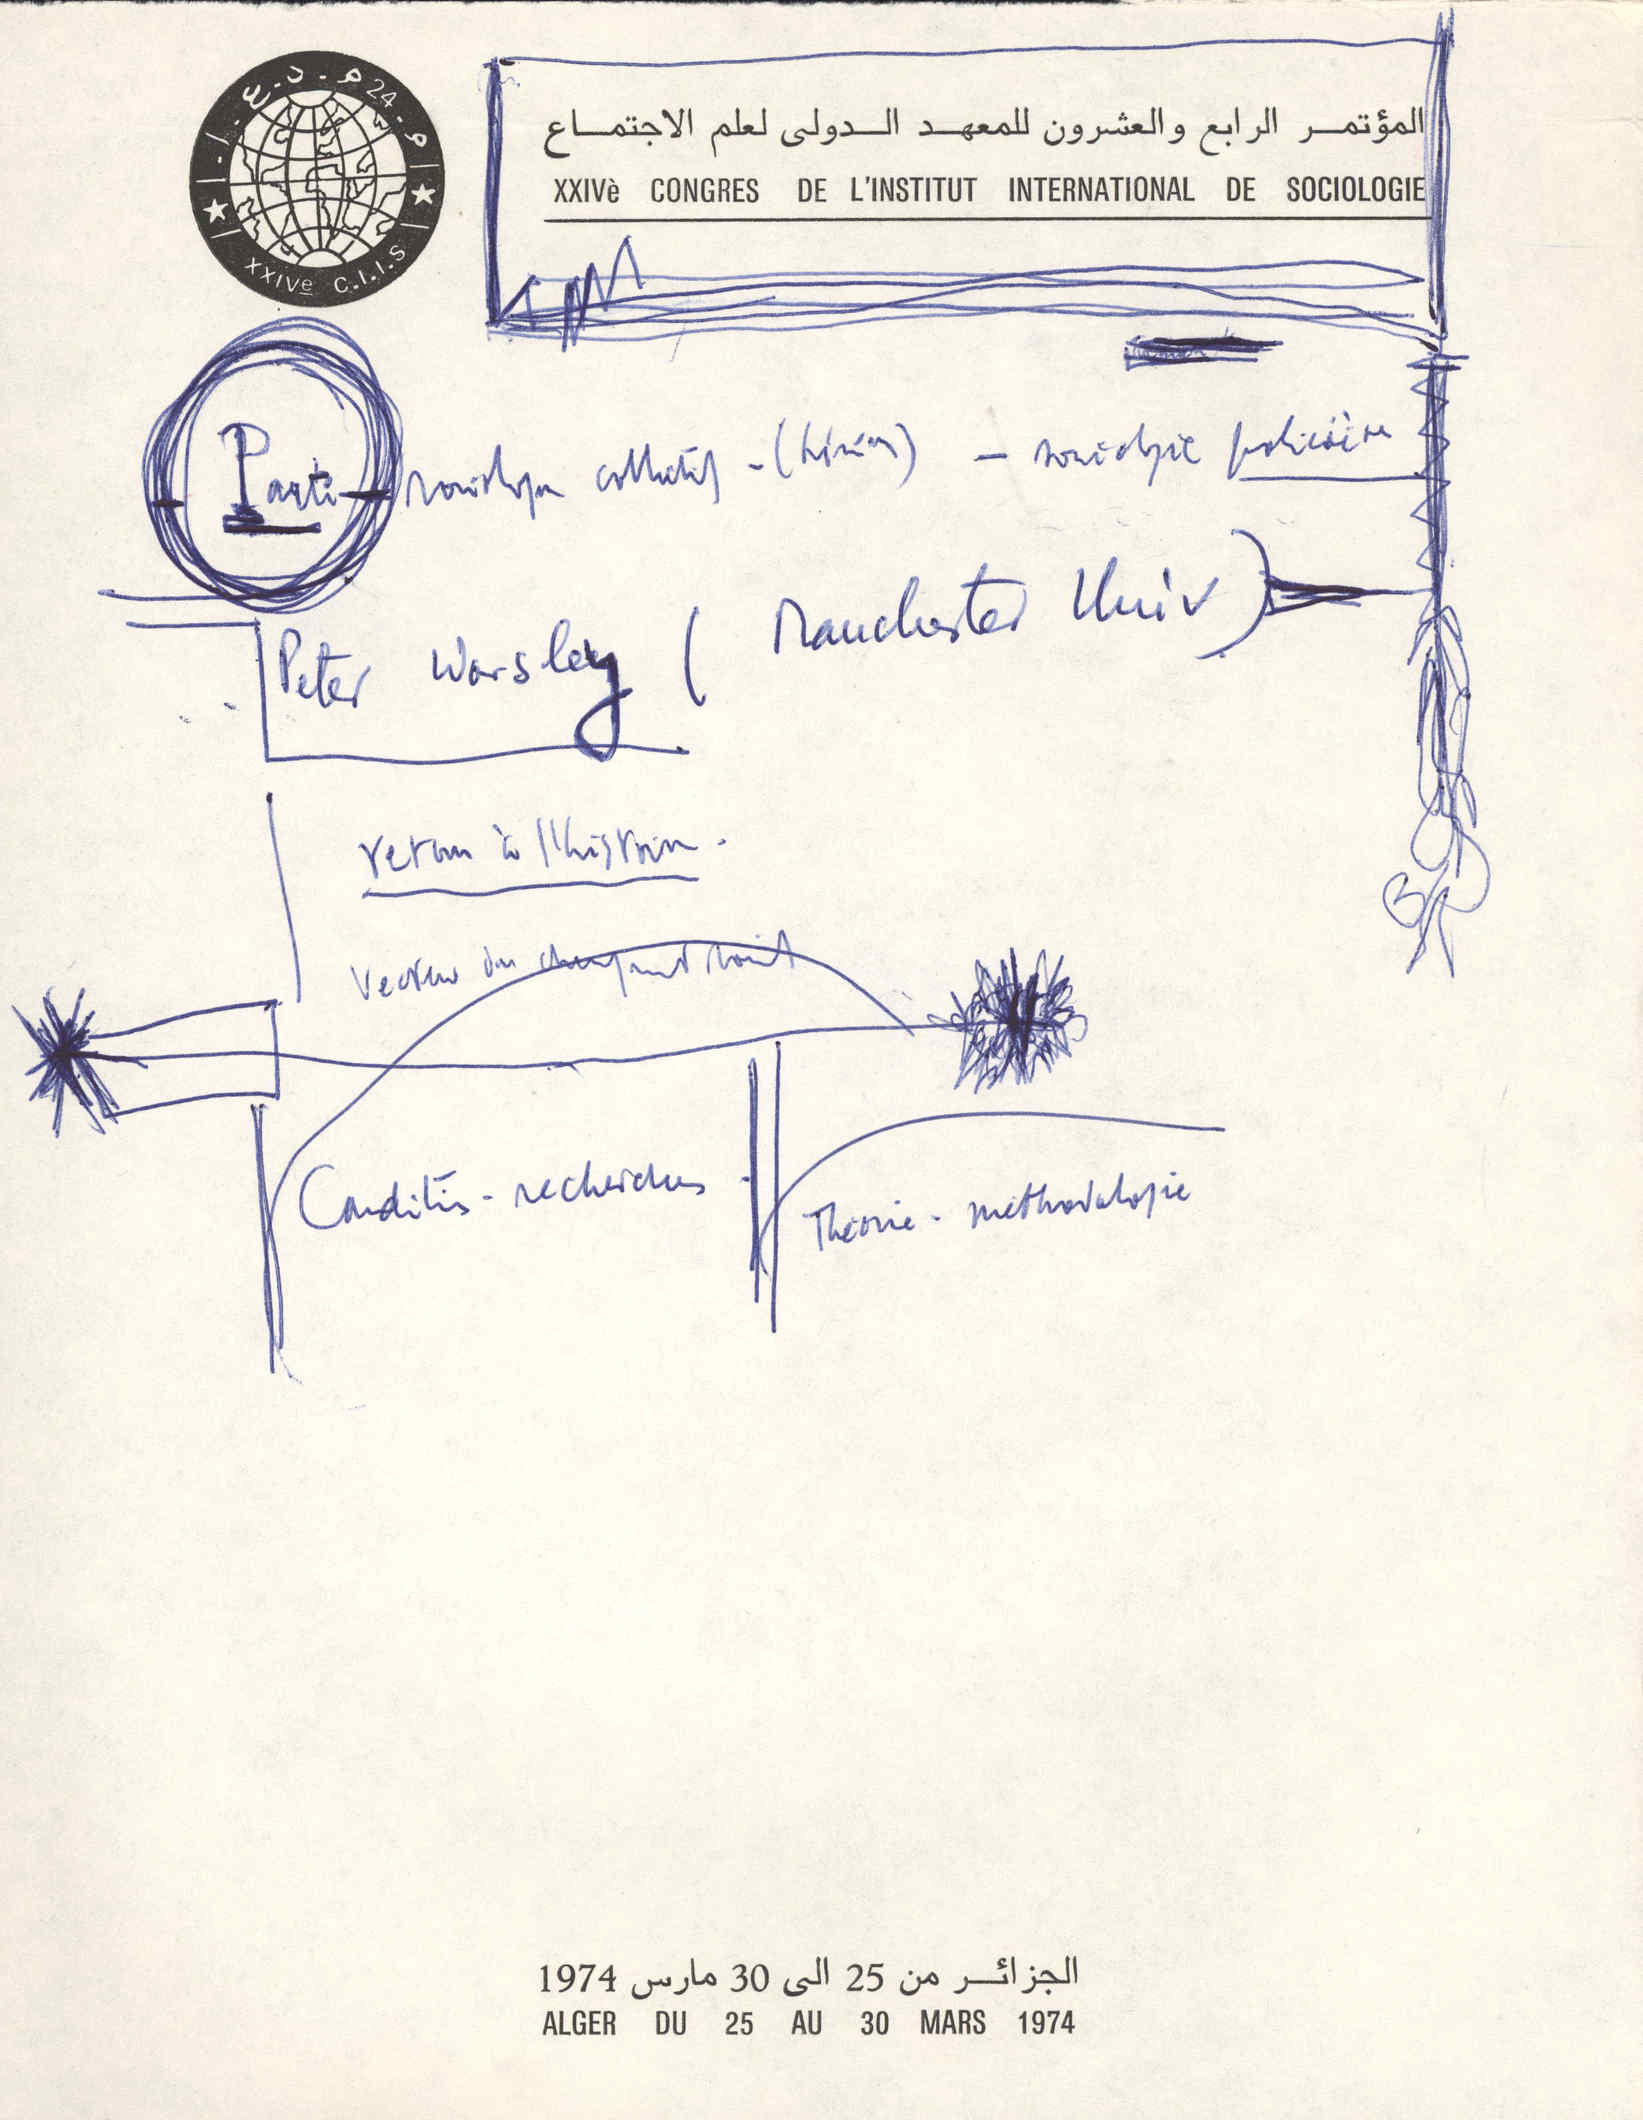 م.24 - م - د - ع - ا
المؤتمر الرابع والعشرون للمعهد الدولى لعلم الاجتماع
XXIVè CONGRES DE L'INSTITUT INTERNATIONAL DE SOCIOLOGIE
XXIVe C.I.I.S
Parti - sociologie collectif - - sociologie policière
Peter Worsley ( Manchester Univ )
retour à l'histoire.
Vecteur du
Conditis - recherches - Théorie - méthodologie
الجزائر من 25 الى 30 مارس 1974
ALGER DU 25 AU 30 MARS 1974